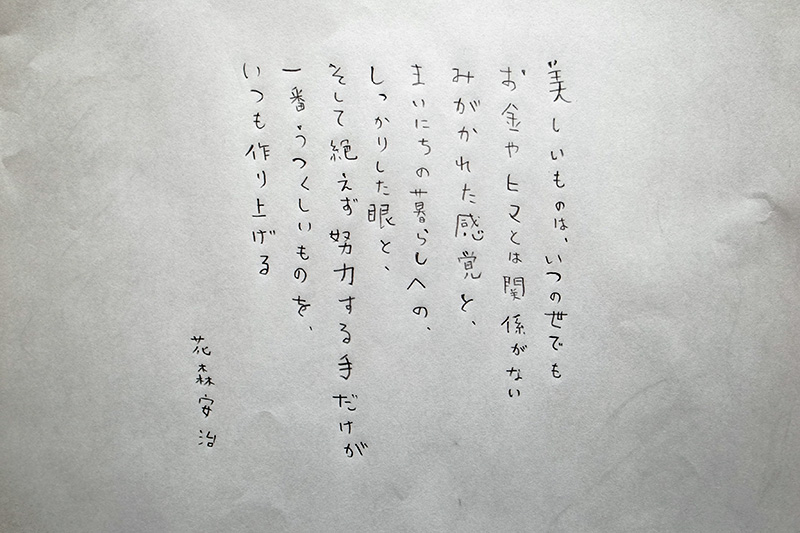 美しいものは、いつの世でも
お金やヒマとは関係がない
みがかれた感覚と、
まいにちの暮らしへの、
しっかりした眼と、
そして絶えず努力する手だけが
一番うつくしいものを、
いつも作り上げる
花森安治